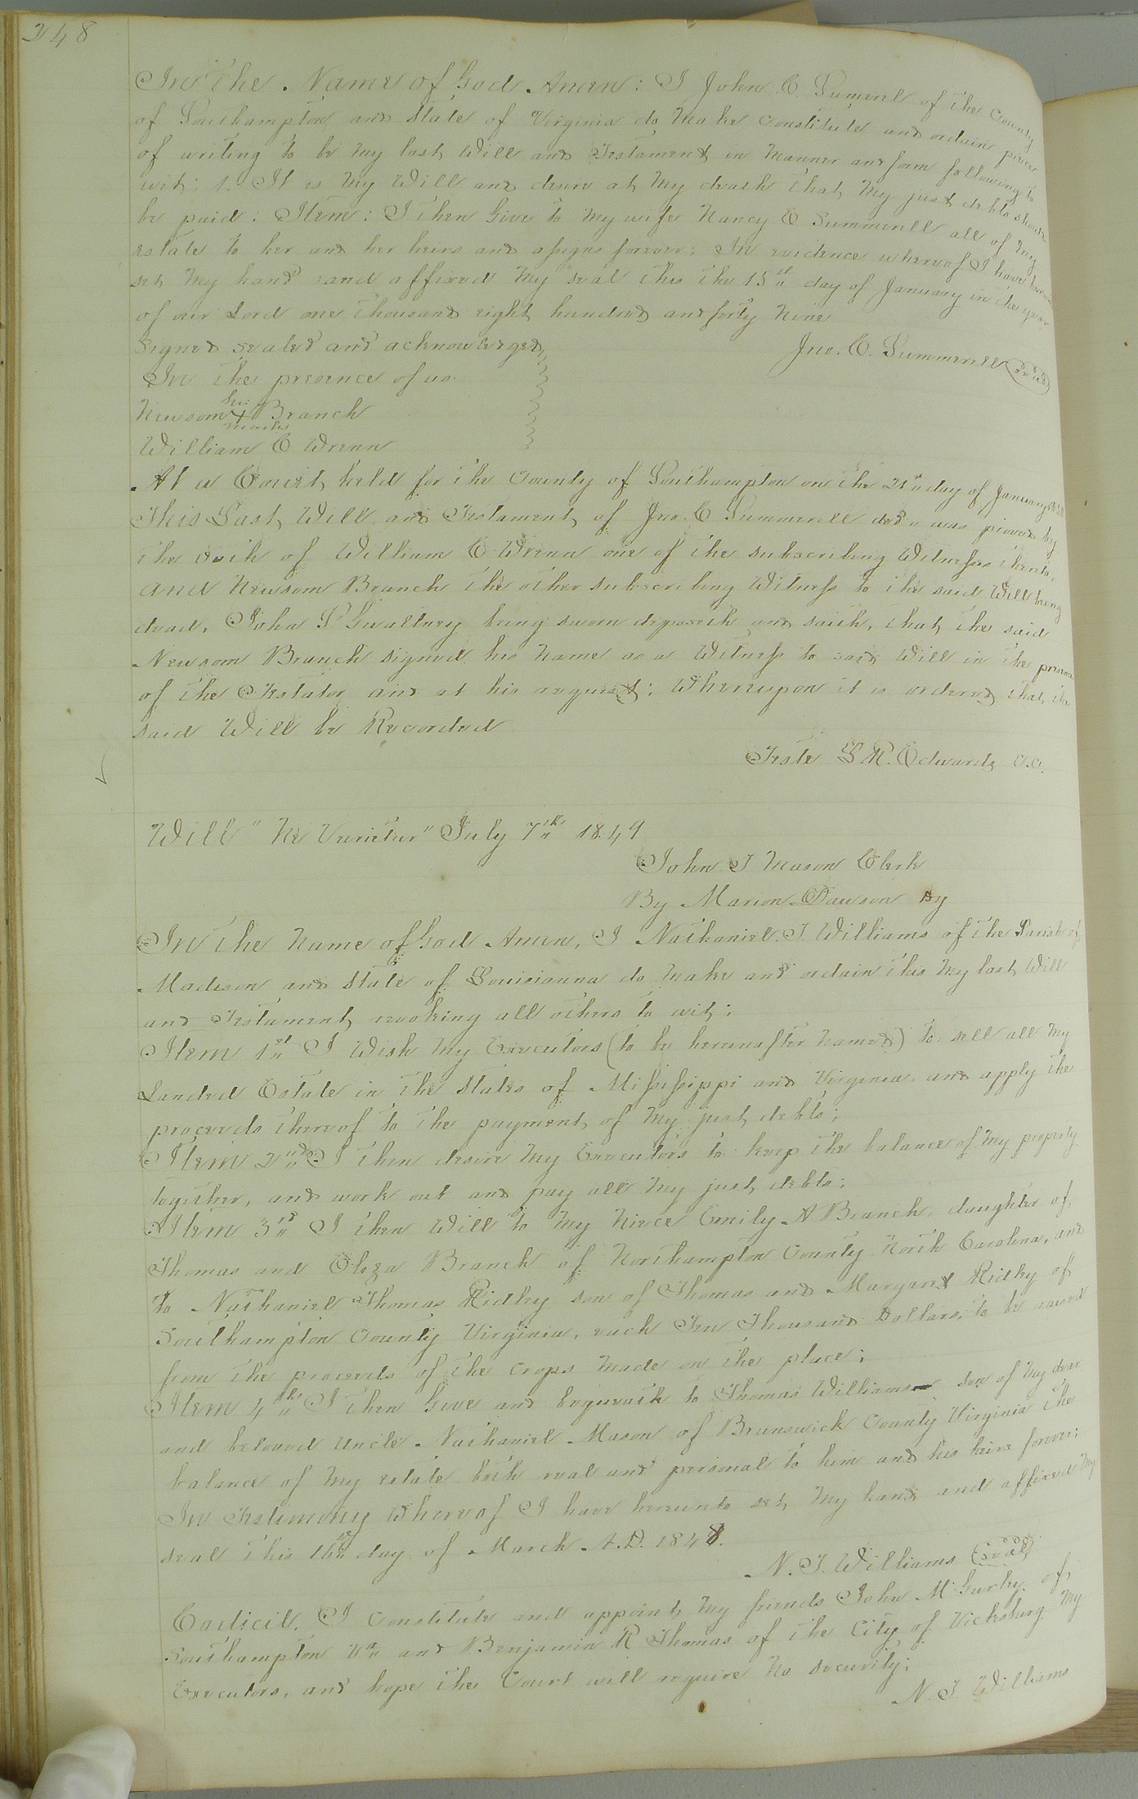 248
In the Name of God Amen: I John C. Sumerel of the County
of Southampton and State of Virginia do Make constitute and ordain
of writing to be My last Will and Testament in Manner and form following to
wit: 1. It is My Will and desire at My death that My just debts should
be paid. Item: I then Give to My wife Nancy E Summerell all of My
estate to her and her heirs and assigns forever; In evidence whereof I have
set My hand and affixed My seal this the 15th day of January in the year
of our Lord one thousand eight hundred and forty Nine
Signed sealed and acknowledged
In the presence of us
Jno. C. Summerell Seal
Newsom his + mark Branch
William E Wrenn
At a Court held for the County of Southampton on the day of January
This Last Will and Testament of Jno. C Summerell decd was proved by
the oath of William E Wrenn one of the subscribing Witnesses thereto,
and Newsom Branch the other subscribing Witness to the said Will being
dead, John P Gwaltney being sworn deposeth and saith, that the said
Newsom Branch signed his name as a Witness to said Will in the presence
of the Testator and at his request; Whereupon it is ordered that the
said Will be Recorded
Teste L. R. Edwards C.C.
Will "Ne Varietur" July 7th 1849
John T Mason Clerk
By Marion Dawson Dy
In the Name of God Amen, I Nathaniel T Williams of the Parish of
Madison and State of Louisianna do make and ordain this My last Will
and Testament revoking all others to wit:
Item 1st I Wish My Executors (to be hereinafter Named) to sell all My
Landed Estate in the States of Mississippi and Virginia and apply the
proceeds thereof to the payment of My just debts;
Item 2nd I then desire My Executors to keep the balance of My property
together, and work out and pay all My just debts;
Item 3rd I then Will to My Niece Emily A Branch, daughter of
Thomas and Eliza Branch of Northampton County North Carolina, and
to Nathaniel Thomas Ridley son of Thomas and Margaret Ridley of
Southampton County Virginia, each Ten Thousand Dollars, to be raised
from the proceeds of the crops made on the place;
Item 4th I then Give and bequeath to Thomas Williams son of My dear
and beloved Uncle Nathaniel Mason of Brunswick County Virginia the
balance of My estate both real and personal to him and his heirs forever;
In Testimony Whereof I have hereunto set My hand and affixed My
seal this 16th day of March A.D. 1848.
N. T. Williams Seal
Codicil. I Constitute and appoint My friends John M Gurley of
Southampton Va and Benjamin R Thomas of the City of Vicksburg My
Executors, and hope the Court will require No security;
N. T Williams